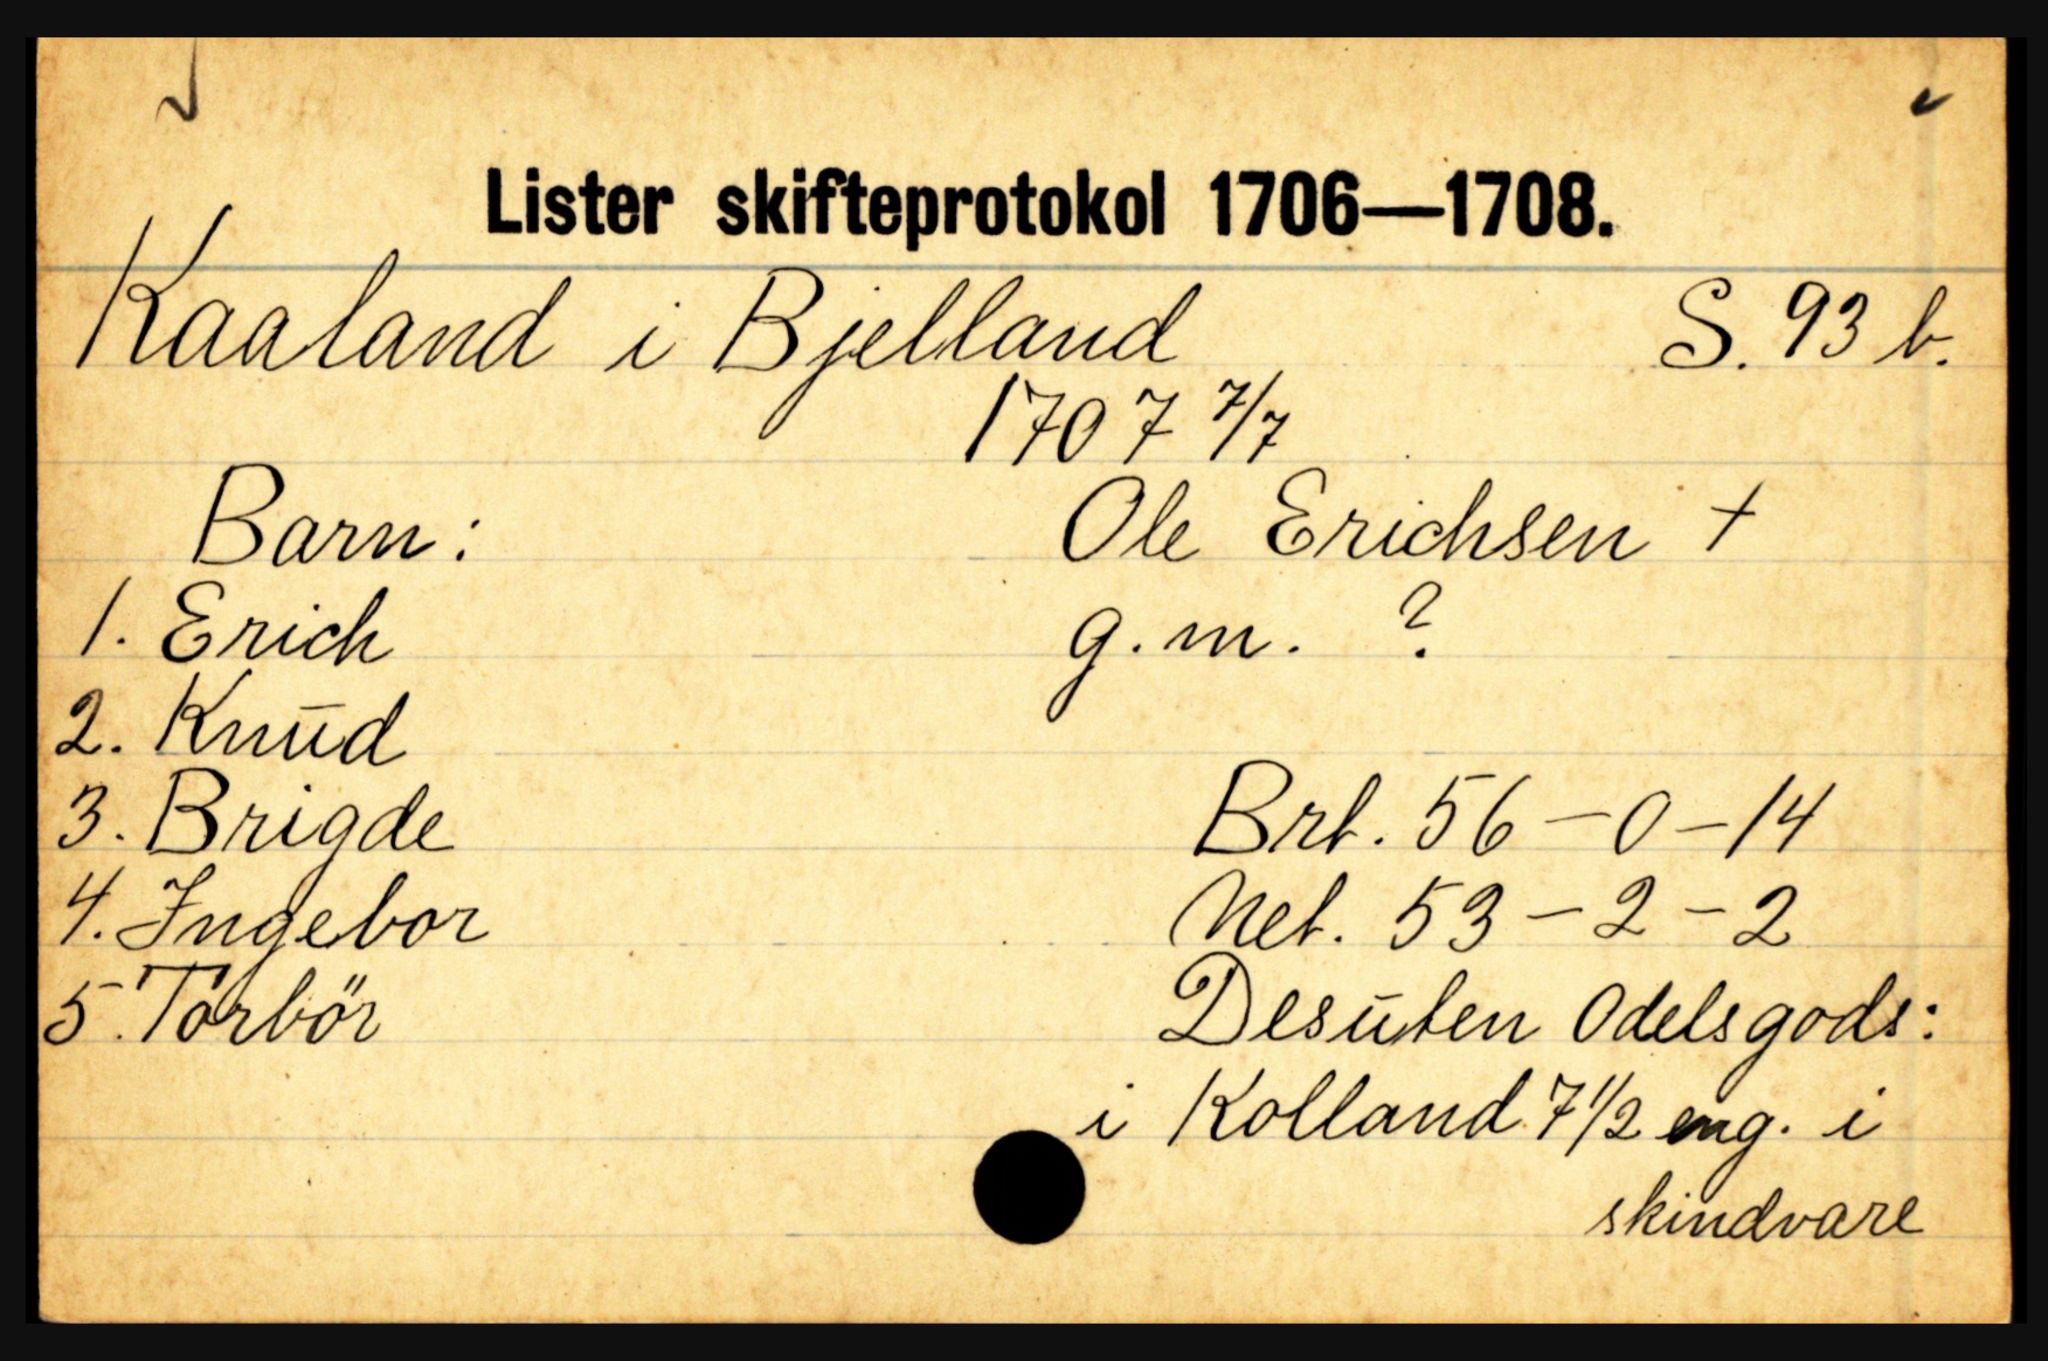 Lister skifteprotokol 1706—1708.
Kaaland i Bjelland S. 93 b.
1707 7/7
Barn: Ole Erichsen +
1. Erich g.m. ?
2. Knud
3. Brigde Brt. 56 — 0 — 14
4. Ingebor Net. 53 — 2 — 2
5. Torbör Desuten Odelsgods:
i Kolland 7 1/2 eng. i
skindvare